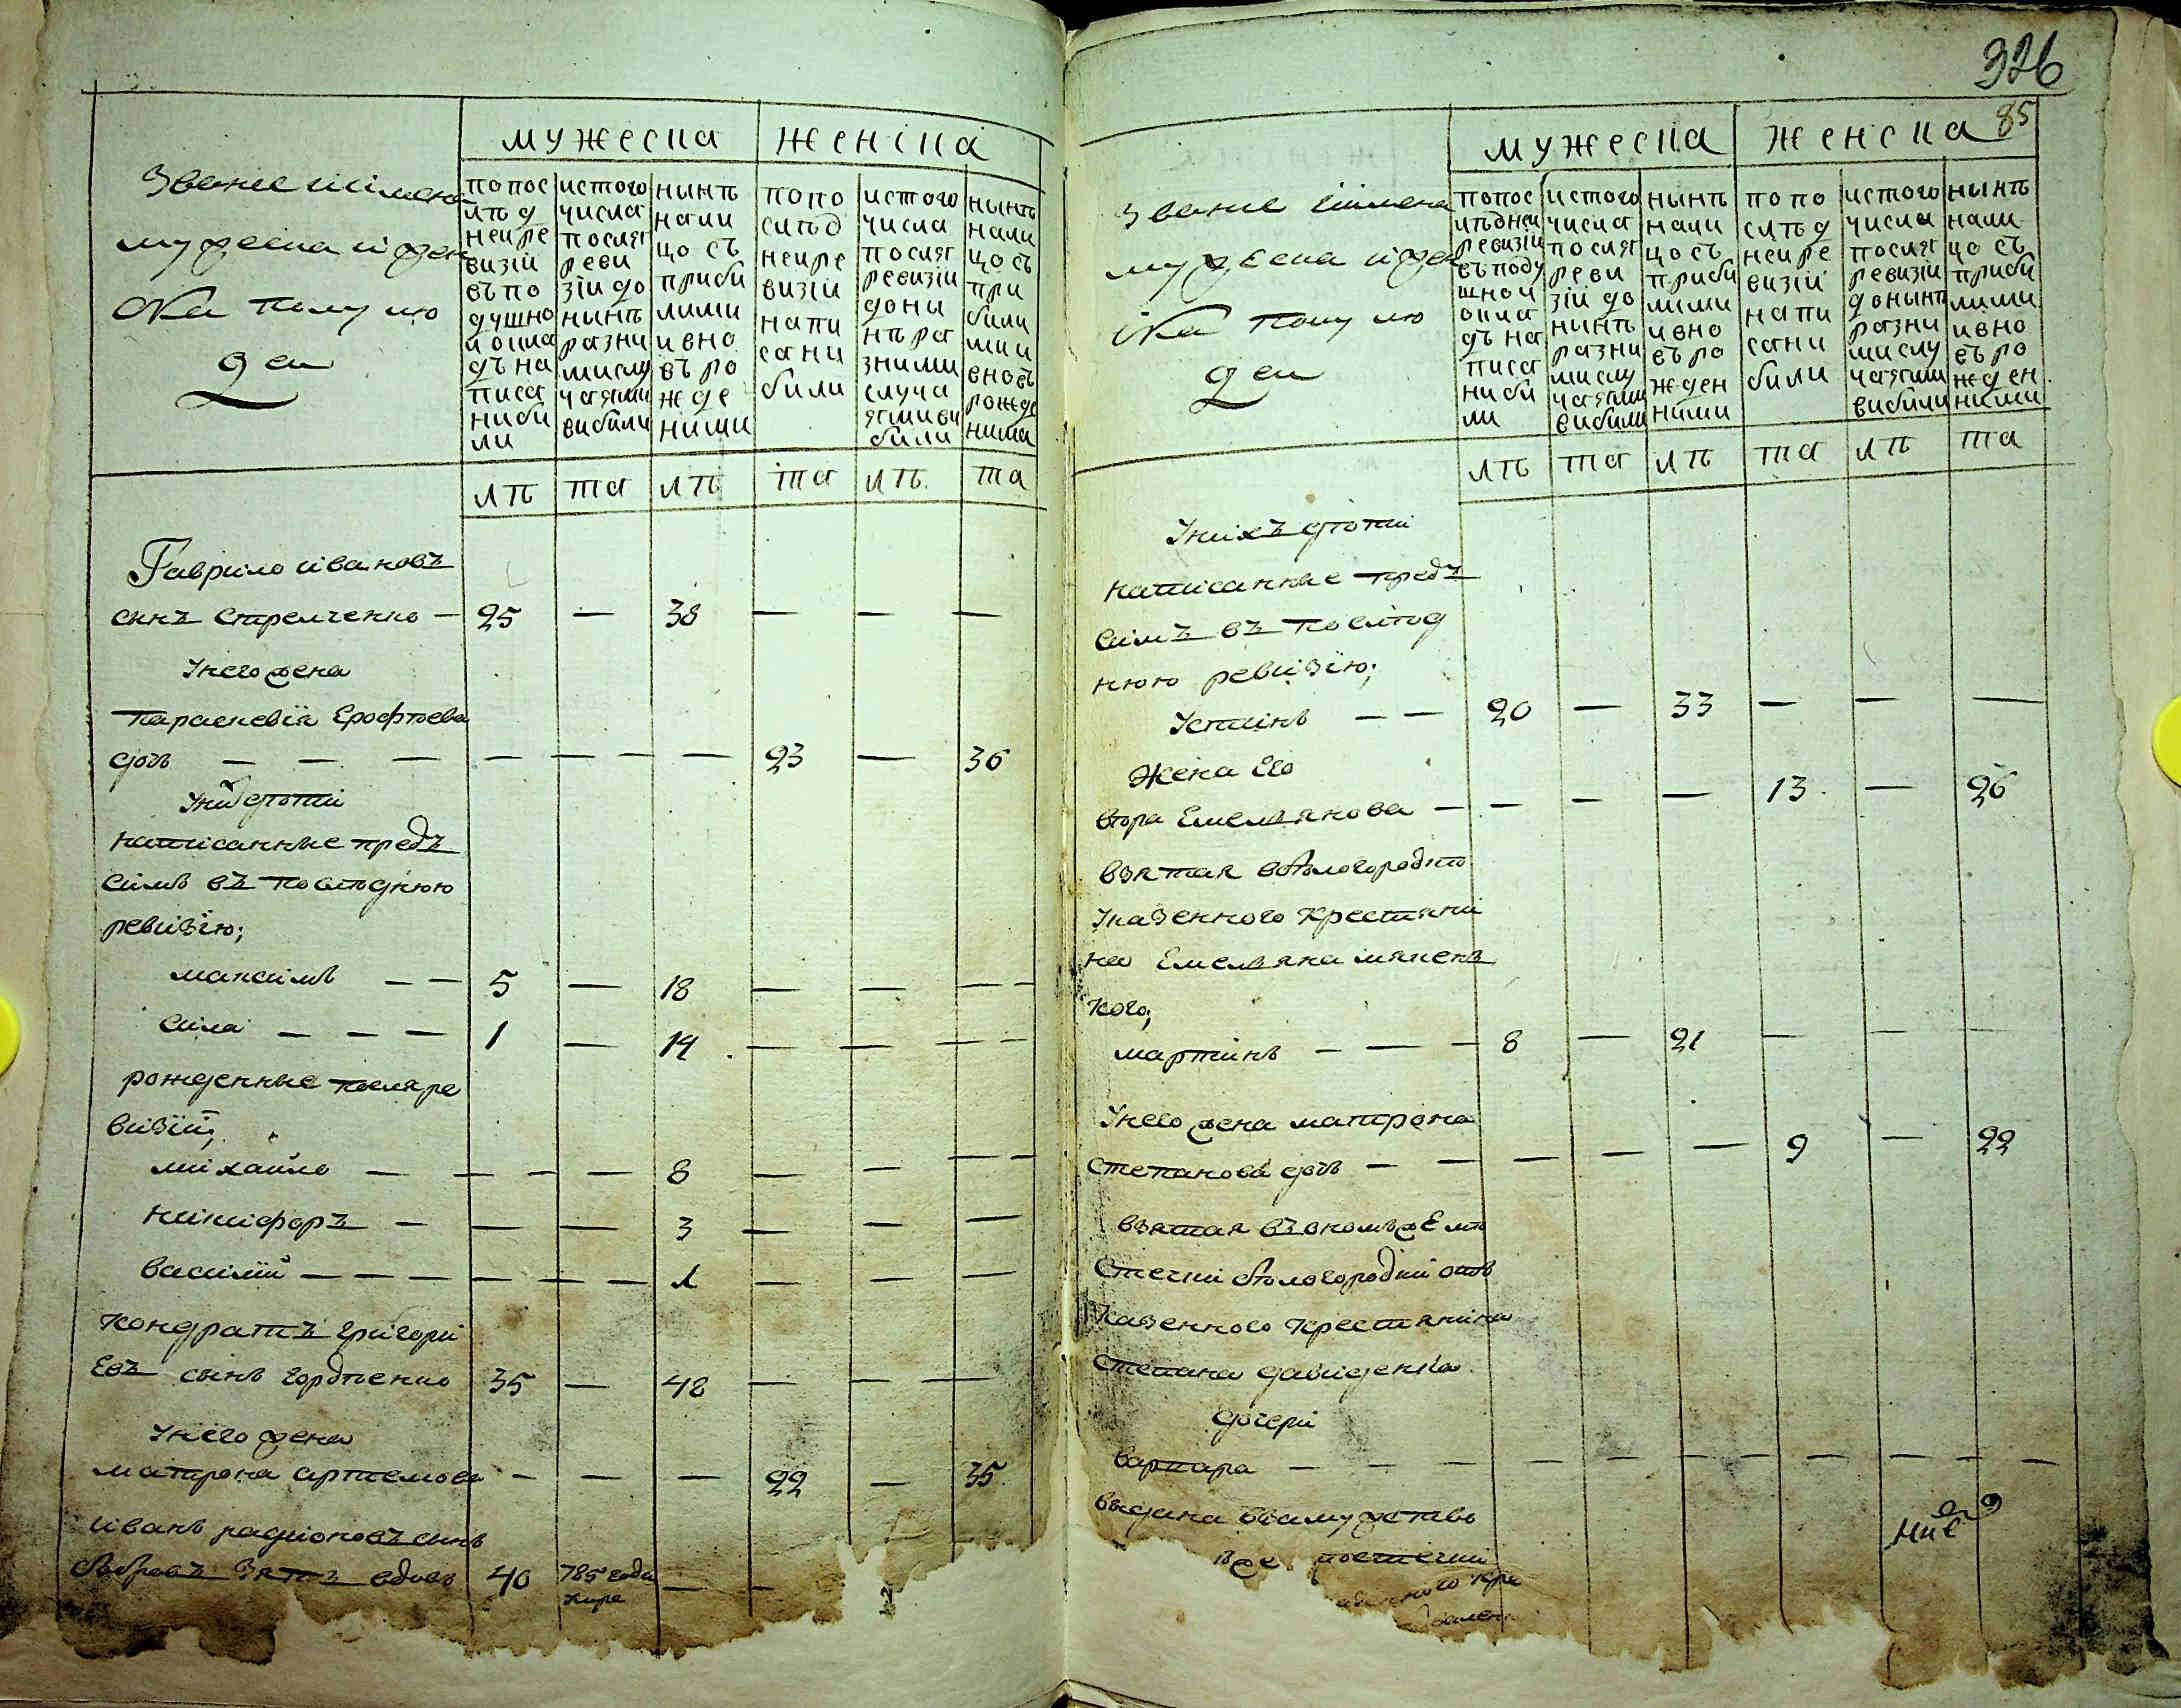 326
85
Звание иімена
мужеска иржен
ска полу лю
деи
мужеска
женіка
попос
лѣд
неире
визіи
въпо
душно
иокла
дъна
писа
ниби
ли
истого
числа
посляг
реви
зіи до
нынѣ
разни
мислу
чаями
вибили
нынѣ
нали
цо съ
приби
лими
ивно
въ ро
жде
ними
попо
слѣд
неире
визіи
напи
сани
били
истого
числа
посляг
ревизіи
доны
нѣ ра
зними
случа
ямиви
били
нынѣ
нали
цо съ
при
били
ми и
вновъ
рожде
ними
лѣ та лѣ та лѣ та
Гаврило ивановъ
синъ Стрелченко — 25 — 38 — — —
Унего жена
параскевія Ерофѣева
дочь — — — — — — 23 — 36
Унихъ дѣти
написанные предъ
симъ въ послѣднюю
ревизію;
максимъ — — 5 — 18 — — — —
Сила — — — 1 — 14 — — — —
рожденные посляре
визіи;
михаило — — — — 8 — — —
никифоръ — — — 3 — — —
василій — — — — — — 1 — — —
кондратъ григори
Евъ сынъ гордѣенко 35 — 48 — — —
Унего жена
матрона артемова — — — 22 — 35
иванъ радионовъ сынъ
бобровъ зять вдовъ 40 785 года — —
умре
Звание иімена
мужеска ижен
ска полу лю
деи
мужеска
женска
попос
лѣднеи
ревизіи
въподу
шнои
окла
дъ на
писа
ниби
ли
истого
числа
посляг
реви
зіи до
нынѣ
разни
мислу
чаями
вибили
нынѣ
нали
цо съ
приби
лими
ивно
въро
жден
ними
попо
слѣд
неире
визіи
напи
сани
били
истого
числа
посляг
ревизіи
донынѣ
разни
мислу
чаями
вибили
нынѣ
нали
цо съ
приби
лими
ивно
въро
жден
ними
лѣ та лѣ та лѣ та
Унихъ дѣти
написанные предъ
симъ въ послѣд
нюю ревизію;
Устинъ — — 20 — 33 — — —
Жена Его
вѣра Емельянова — — — — 13 — 26
взятая вбѣлогородкѣ
Указенного крестяни
на Емельяна
кого;
мартинъ — — — 8 — 21 — — —
Унего жена матрона
Степанова дочь — — — — — 9 — 22
взятая въ ономъже мѣ
стечки бѣлогородки отъ
казенного крестянина
Степана давиденка
дочери
варвара — — — — — — — — —
выдана взамужство